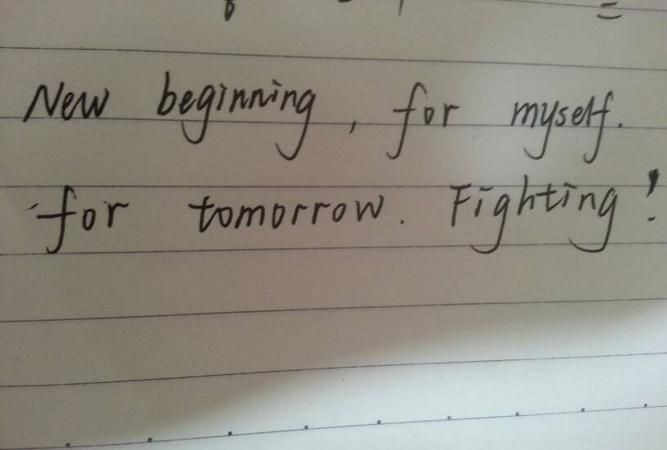 New beginning, for myself.
for tomorrow. Fighting!